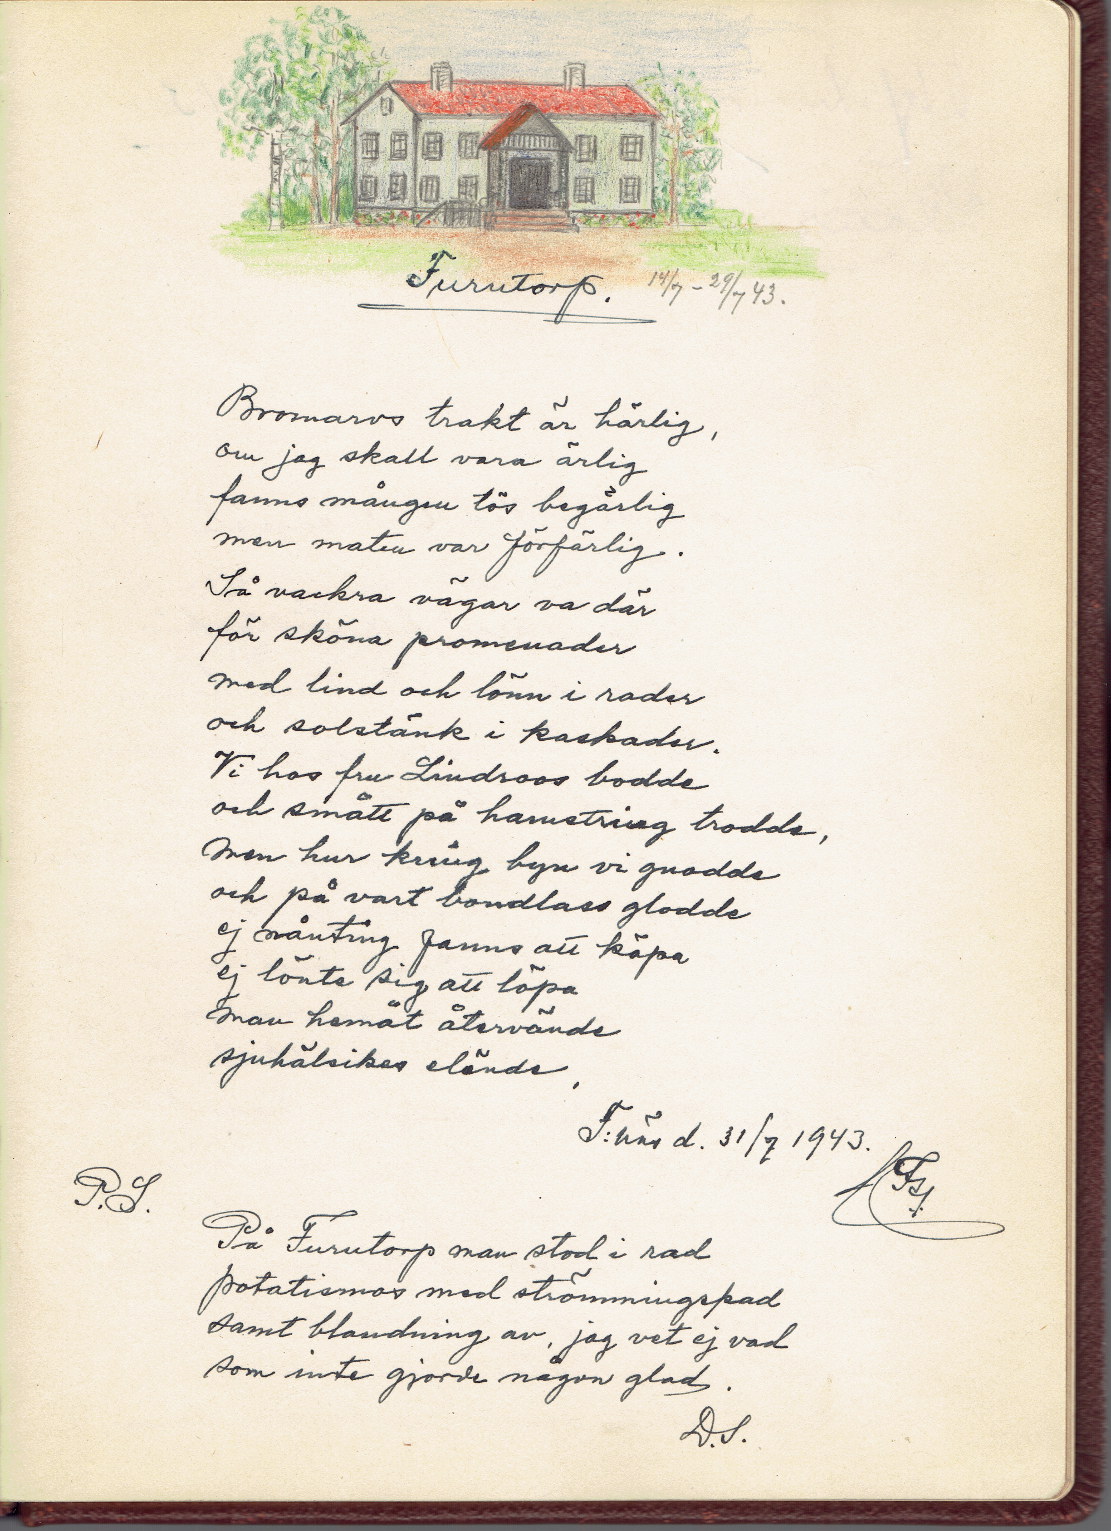 Furutorp. 14/7 – 29/7 43.
Bromarvs trakt är härlig,
om jag skall vara ärlig
fanns mången tös begärlig
men maten var förfärlig.
Så vackra vägar va där
för sköna promenader
med lind och lönn i rader
och solstänk i kaskader.
Vi hos fru Lindroos bodde
och smått på hamstring trodde,
men hur kring byn vi gnodde
och på vart bondlass glodde
ej nånting fanns att köpa
ej lönte sig att löpa
man hemåt återvände
sjuhälsikes elände,
F:näs d. 31/7 1943.
P.S.
På Furutorp man stod i rad
potatismos med strömmingspad
samt blandning av, jag vet ej vad
som inte gjorde någon glad.
D.S.